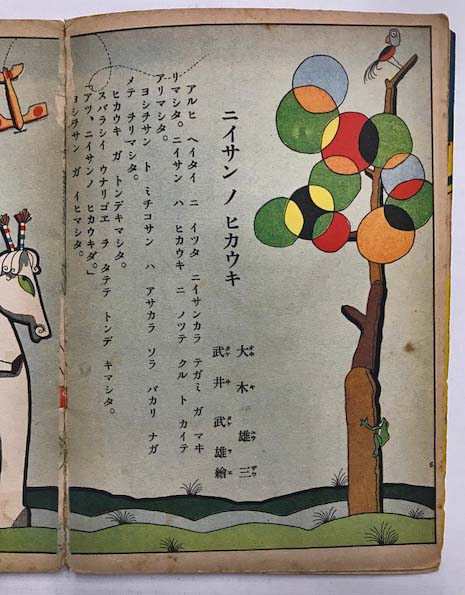 ニイサン ノ ヒカウキ
大木雄三
武井武雄繪
アルヒ ヘイタイ ニ イツタ ニイサンカラ テガミ ガ マヰ
リマシタ。ニイサン ハ ヒカウキ ニ ノツテ クル ト カイテ
アリマシタ。
ヨシチサン ト ミチコサン ハ アサカラ ソラ バカリ ナガ
メテ ヲリマシタ。
ヒカウキ ガ トンデキマシタ。
スバラシイ ウナリゴエ ヲ タテテ トンデ キマシタ。
「アツ、ニイサンノ ヒカウキダ。」
ヨシチサン ガ イヒマシタ。
6